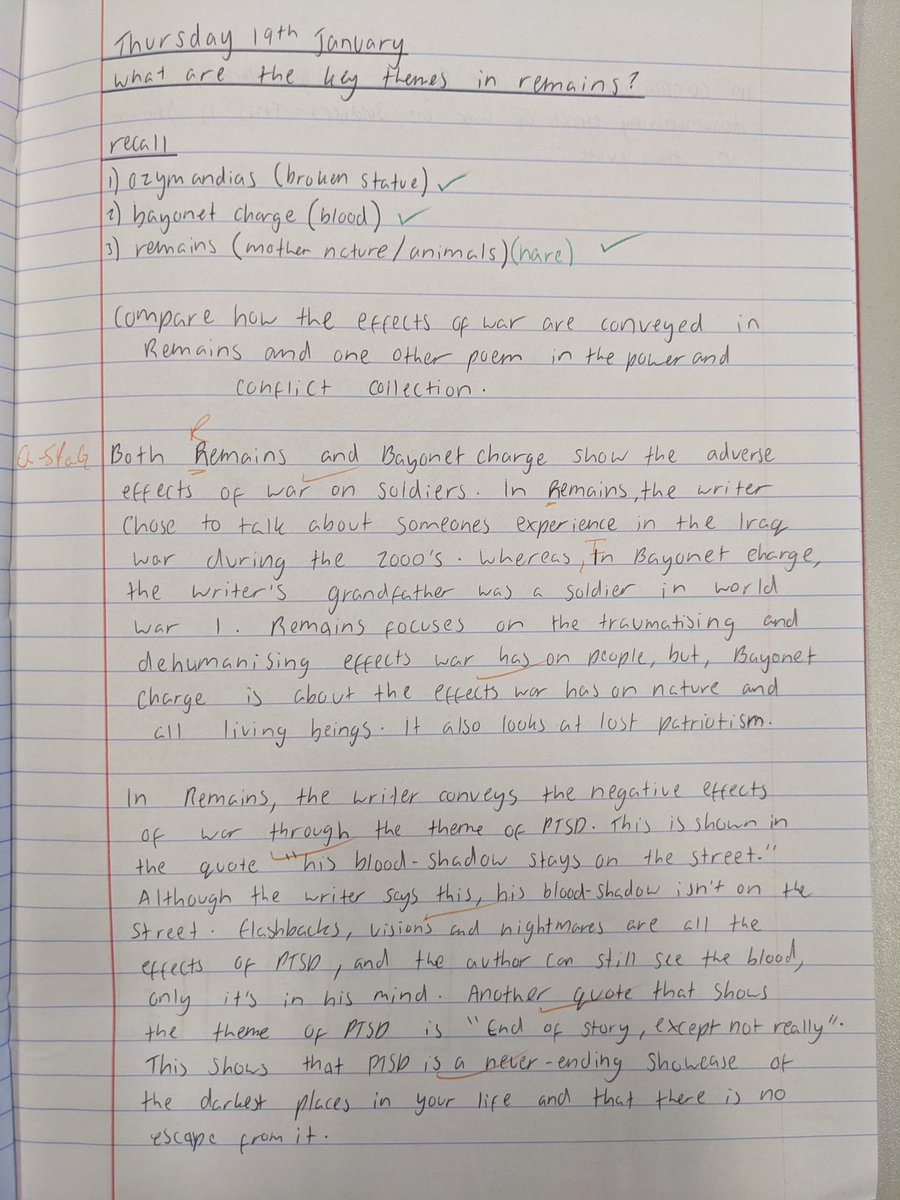 Thursday 19th January
what are the key themes in remains?
recall
1) ozymandias (broken statue) ✓
2) bayonet charge (blood) ✓
3) remains (mother nature/animals) (hare) ✓
Compare how the effects of war are conveyed in
Remains and one other poem in the power and
conflict collection.
R
Both Remains and Bayonet charge show the adverse
effects of war on soldiers. In Remains, the writer
chose to talk about someones experience in the Iraq
war during the 2000's. whereas, In Bayonet charge,
the writer's grandfather was a soldier in world
war 1. Remains focuses on the traumatising and
dehumanising effects war has on people, but, Bayonet
Charge is about the effects war has on nature and
all living beings. It also looks at lost patriotism.
In Remains, the writer conveys the negative effects
of war through the theme of PTSD. This is shown in
the quote "his blood-shadow stays on the street."
Although the writer says this, his blood-shadow isn't on the
street. flashbacks, visions and nightmares are all the
effects of PTSD, and the author can still see the blood,
only it's in his mind. Another quote that shows
the theme of PTSD is "End of story, except not really".
This shows that PTSD is a never-ending showcase of
the darkest places in your life and that there is no
escape from it.